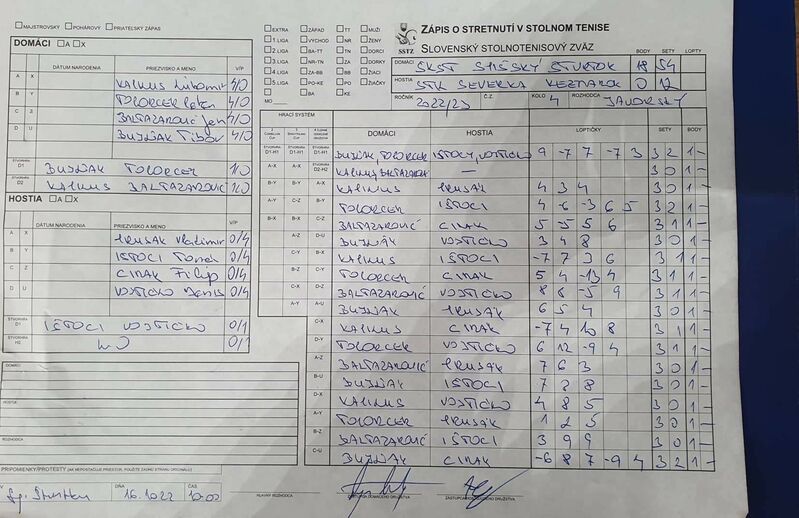 MAJSTROVSKÝ POHÁROVÝ PRIATEĽSKÝ ZÁPAS
DOMÁCI A X
DÁTUM NARODENIA PRIEZVISKO A MENO V/P
A X KALINUS Ľubomír 4/0
B Y TOLORCER Peter 4/0
C Z BALTAZAROVIČ Jan 4/0
D U BUJŇÁK Tibor 4/0
ŠTVORHRA D1 BUJŇÁK TOLORCER 1/0
ŠTVORHRA D2 KALINUS BALTAZAROVIČ 1/0
HOSTIA A X
DÁTUM NARODENIA PRIEZVISKO A MENO V/P
A X HRUSÁK Vladimír 0/4
B Y IŠTOCI Tomáš 0/4
C Z CINAK Filip 0/4
D U VOJTIČKO Denis 0/4
ŠTVORHRA D1 IŠTOCI VOJTIČKO 0/1
ŠTVORHRA H2 WO 0/1
DOMÁCI
HOSTIA
ROZHODCA
PRIPOMIENKY/PROTESTY (AK NEPOSTAČUJE PRIESTOR, POUŽITE ZADNÚ STRANU ORIGINÁLU)
Sp. Štvrtok DŇA 16.10.22 ČAS 10:00
EXTRA ZÁPAD TT MUŽI
1. LIGA VÝCHOD NR ŽENY
2. LIGA BA-TT TN DORCI
3. LIGA NR-TN ZA DORKY
4. LIGA ZA-BB BB ŽIACI
5. LIGA PO-KE PO ŽIAČKY
BA KE
MO
SSTZ
ZÁPIS O STRETNUTÍ V STOLNOM TENISE
SLOVENSKÝ STOLNOTENISOVÝ ZVÄZ
BODY SETY LOPTY
DOMÁCI ŠKST SPIŠSKÝ ŠTVRTOK 18 54
HOSTIA STK SEVERKA KEŽMAROK 0 12
ROČNÍK 2022/23 Č.Z. KOLO 4 ROZHODCA JAVORSKÝ
HRACÍ SYSTÉM
DOMÁCI HOSTIA LOPTIČKY SETY BODY
D1-H1 D1-H1 D1-H1 BUJŇÁK, TOLORCER IŠTOCI, VOJTIČKO 9 -7 7 -7 3 3 2 1 -
A-X A-X D2-H2 KALINUS, BALTAZAROVIČ — 3 0 1 -
B-Y B-Y A-X KALINUS HRUSÁK 4 3 4 3 0 1 -
A-Y C-Z B-Y TOLORCER IŠTOCI 4 -6 -3 6 5 3 2 1 -
B-X B-X C-Z BALTAZAROVIČ CINAK 5 -5 5 6 3 1 1 -
A-Z D-U BUJŇÁK VOJTIČKO 3 4 8 3 0 1 -
C-Y B-X KALINUS IŠTOCI -7 7 3 6 3 1 1 -
B-Z C-Y TOLORCER CINAK 5 4 -13 4 3 1 1 -
C-X D-Z BALTAZAROVIČ VOJTIČKO 8 8 -5 9 3 1 1 -
A-Y A-U BUJŇÁK HRUSÁK 6 5 4 3 0 1 -
C-X KALINUS CINAK -7 4 10 8 3 1 1 -
D-Y TOLORCER VOJTIČKO 6 12 -9 4 3 1 1 -
A-Z BALTAZAROVIČ HRUSÁK 7 6 3 3 0 1 -
B-U BUJŇÁK IŠTOCI 7 8 8 3 0 1 -
D-X KALINUS VOJTIČKO 4 8 5 3 0 1 -
A-Y TOLORCER HRUSÁK 1 2 5 3 0 1 -
B-Z BALTAZAROVIČ IŠTOCI 3 9 9 3 0 1 -
C-U BUJŇÁK CINAK -6 8 7 -9 4 3 2 1 -
HLAVNÝ ROZHODCA ZÁSTUPCA DOMÁCEHO DRUŽSTVA ZÁSTUPCA HOSŤUJÚCEHO DRUŽSTVA